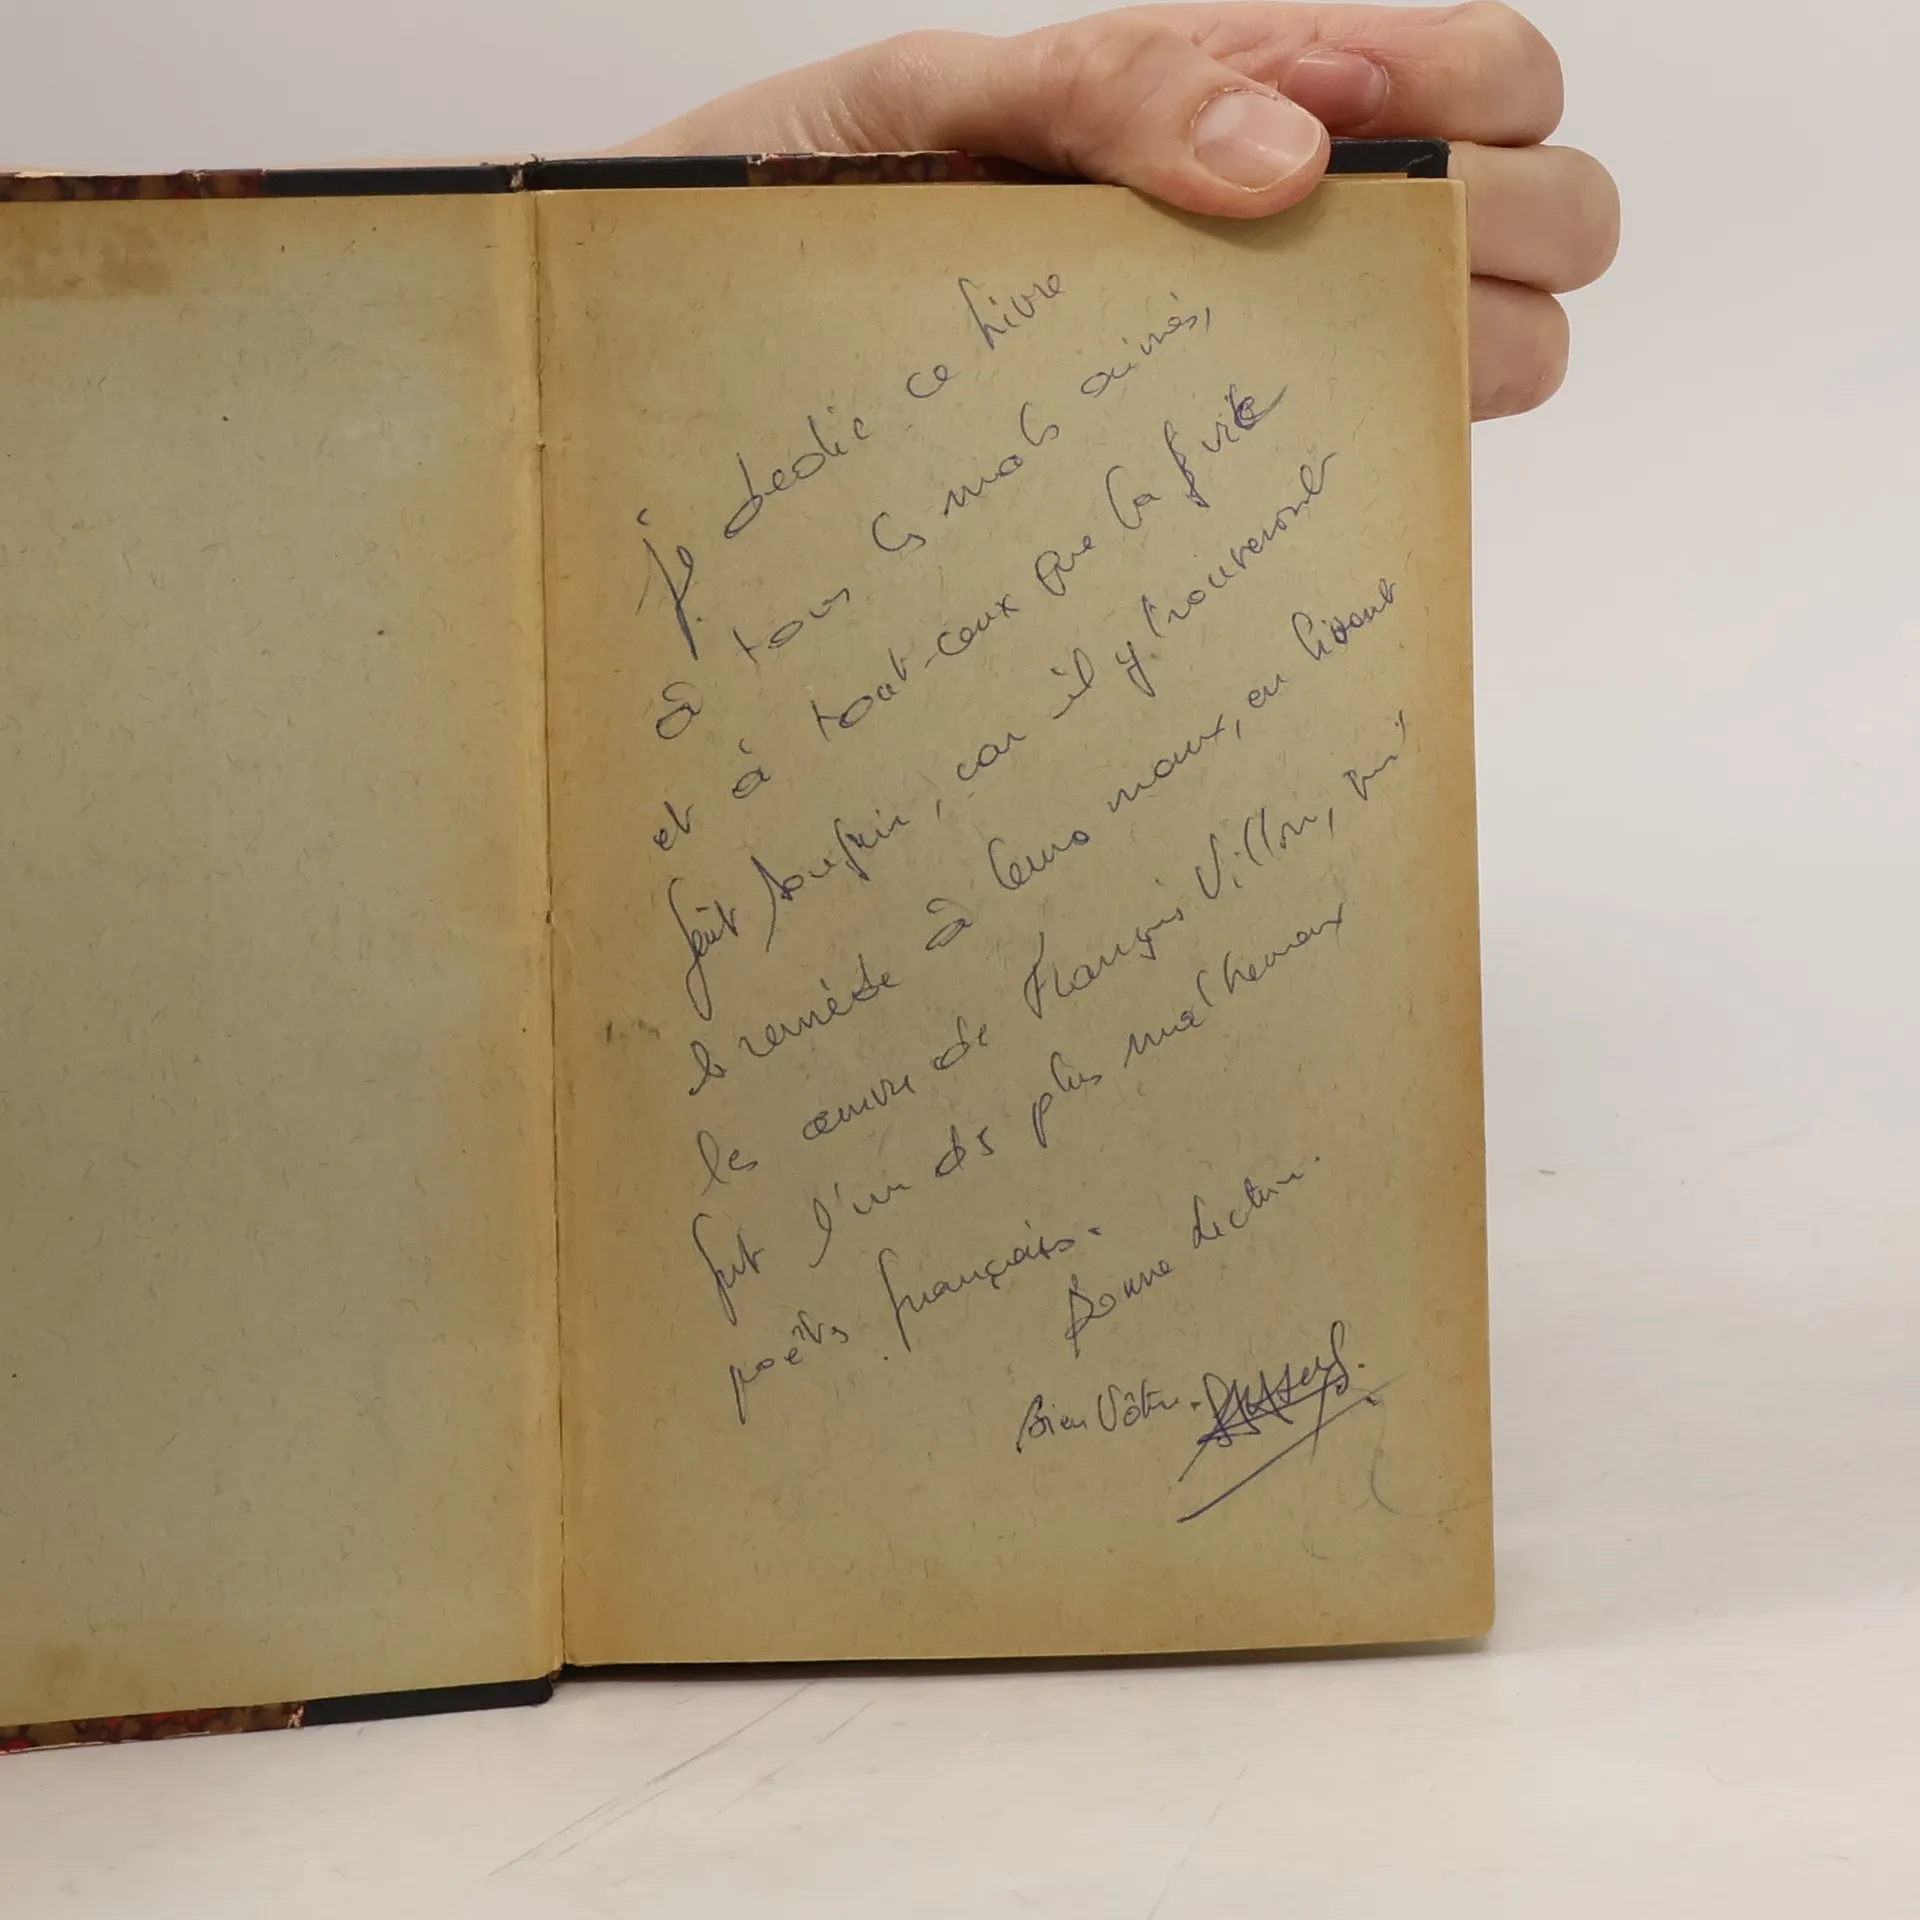 Je dédie ce Livre
à tous les mals aimés,
et à tout-ceux que la
fait souffrir, car il y trouveront
le remède à leurs maux, en lisant
les œuvre de François Villon, qui
fut l'un des plus malheureux
poètes français.
Bonne Lecture.
Bien Vôtre.